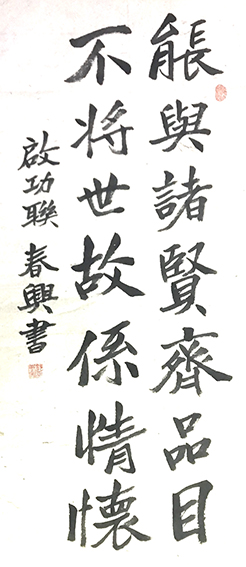 能與諸賢齊品目
不将世故係情懷
啟功聯 春興書